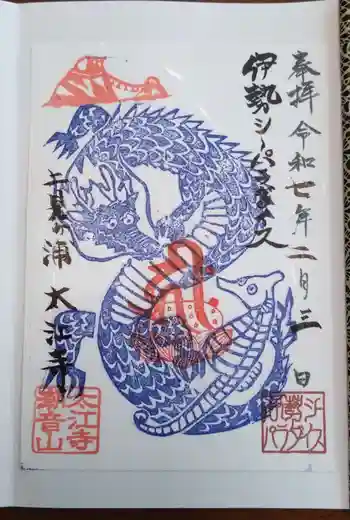 奉拝 令和七年二月三日
伊勢シーパラダイス
二見ケ浦 太江寺
太江寺
潮音山
伊勢シー
パラダイス